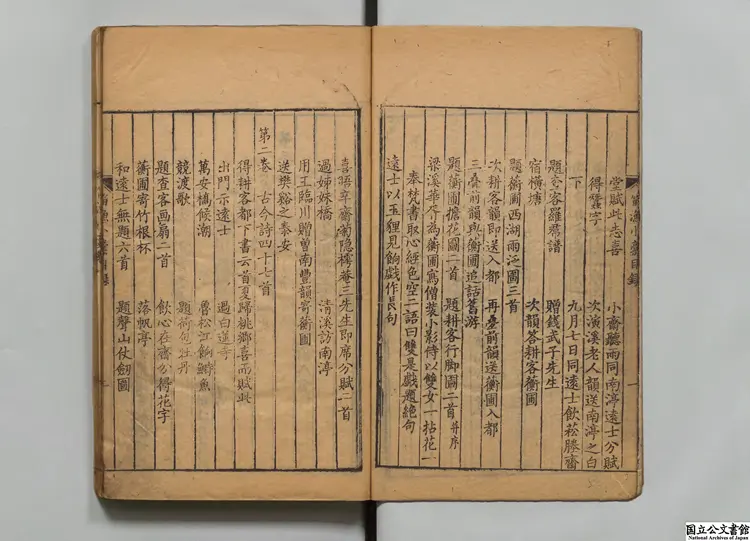 堂賦此志喜　小齋聽雨同南渟遠士分賦
得蠶字　次演溪老人韻送南渟之白
下　九月七日同遠士飲菘塍齋
題客羅譜　贈錢武子先生
宿橫塘　次韻答耕客衡圃
題衡圃西湖雨泛圖三首
次耕客韻即送入都　再疊前韻送衡圃入都
三疊前韻與衡圃追話舊游
題蘅圃擔花圖二首　題耕客行脚圖二首并序
梁溪華為衡圃寫僧裝小影侍以雙女一拈花一
奉梵書取心經色空二語曰雙是戲題絕句
遠士以玉狸見餉戲作長句
喜晤卒齋菊隐樗菴三先生即席分賦二首
過婦妹橋　清溪訪南渟
用王臨川贈曾南豐韻寄衡圃
送樊谿之泰安
第二卷　古今詩四十七首
得耕客都下書云首夏歸桃鄉喜而賦此
出門示遠士　過白蓮寺
萬安橋候潮　魯松江餉鰣魚
競渡歌　題荷包牡丹
題查客画扇二首　飲心在齋分得花字
蘅圃寄竹根杯　落帆亭
和遠士無題六首　題聲山仗劒圖
国立公文書館
National Archives of Japan